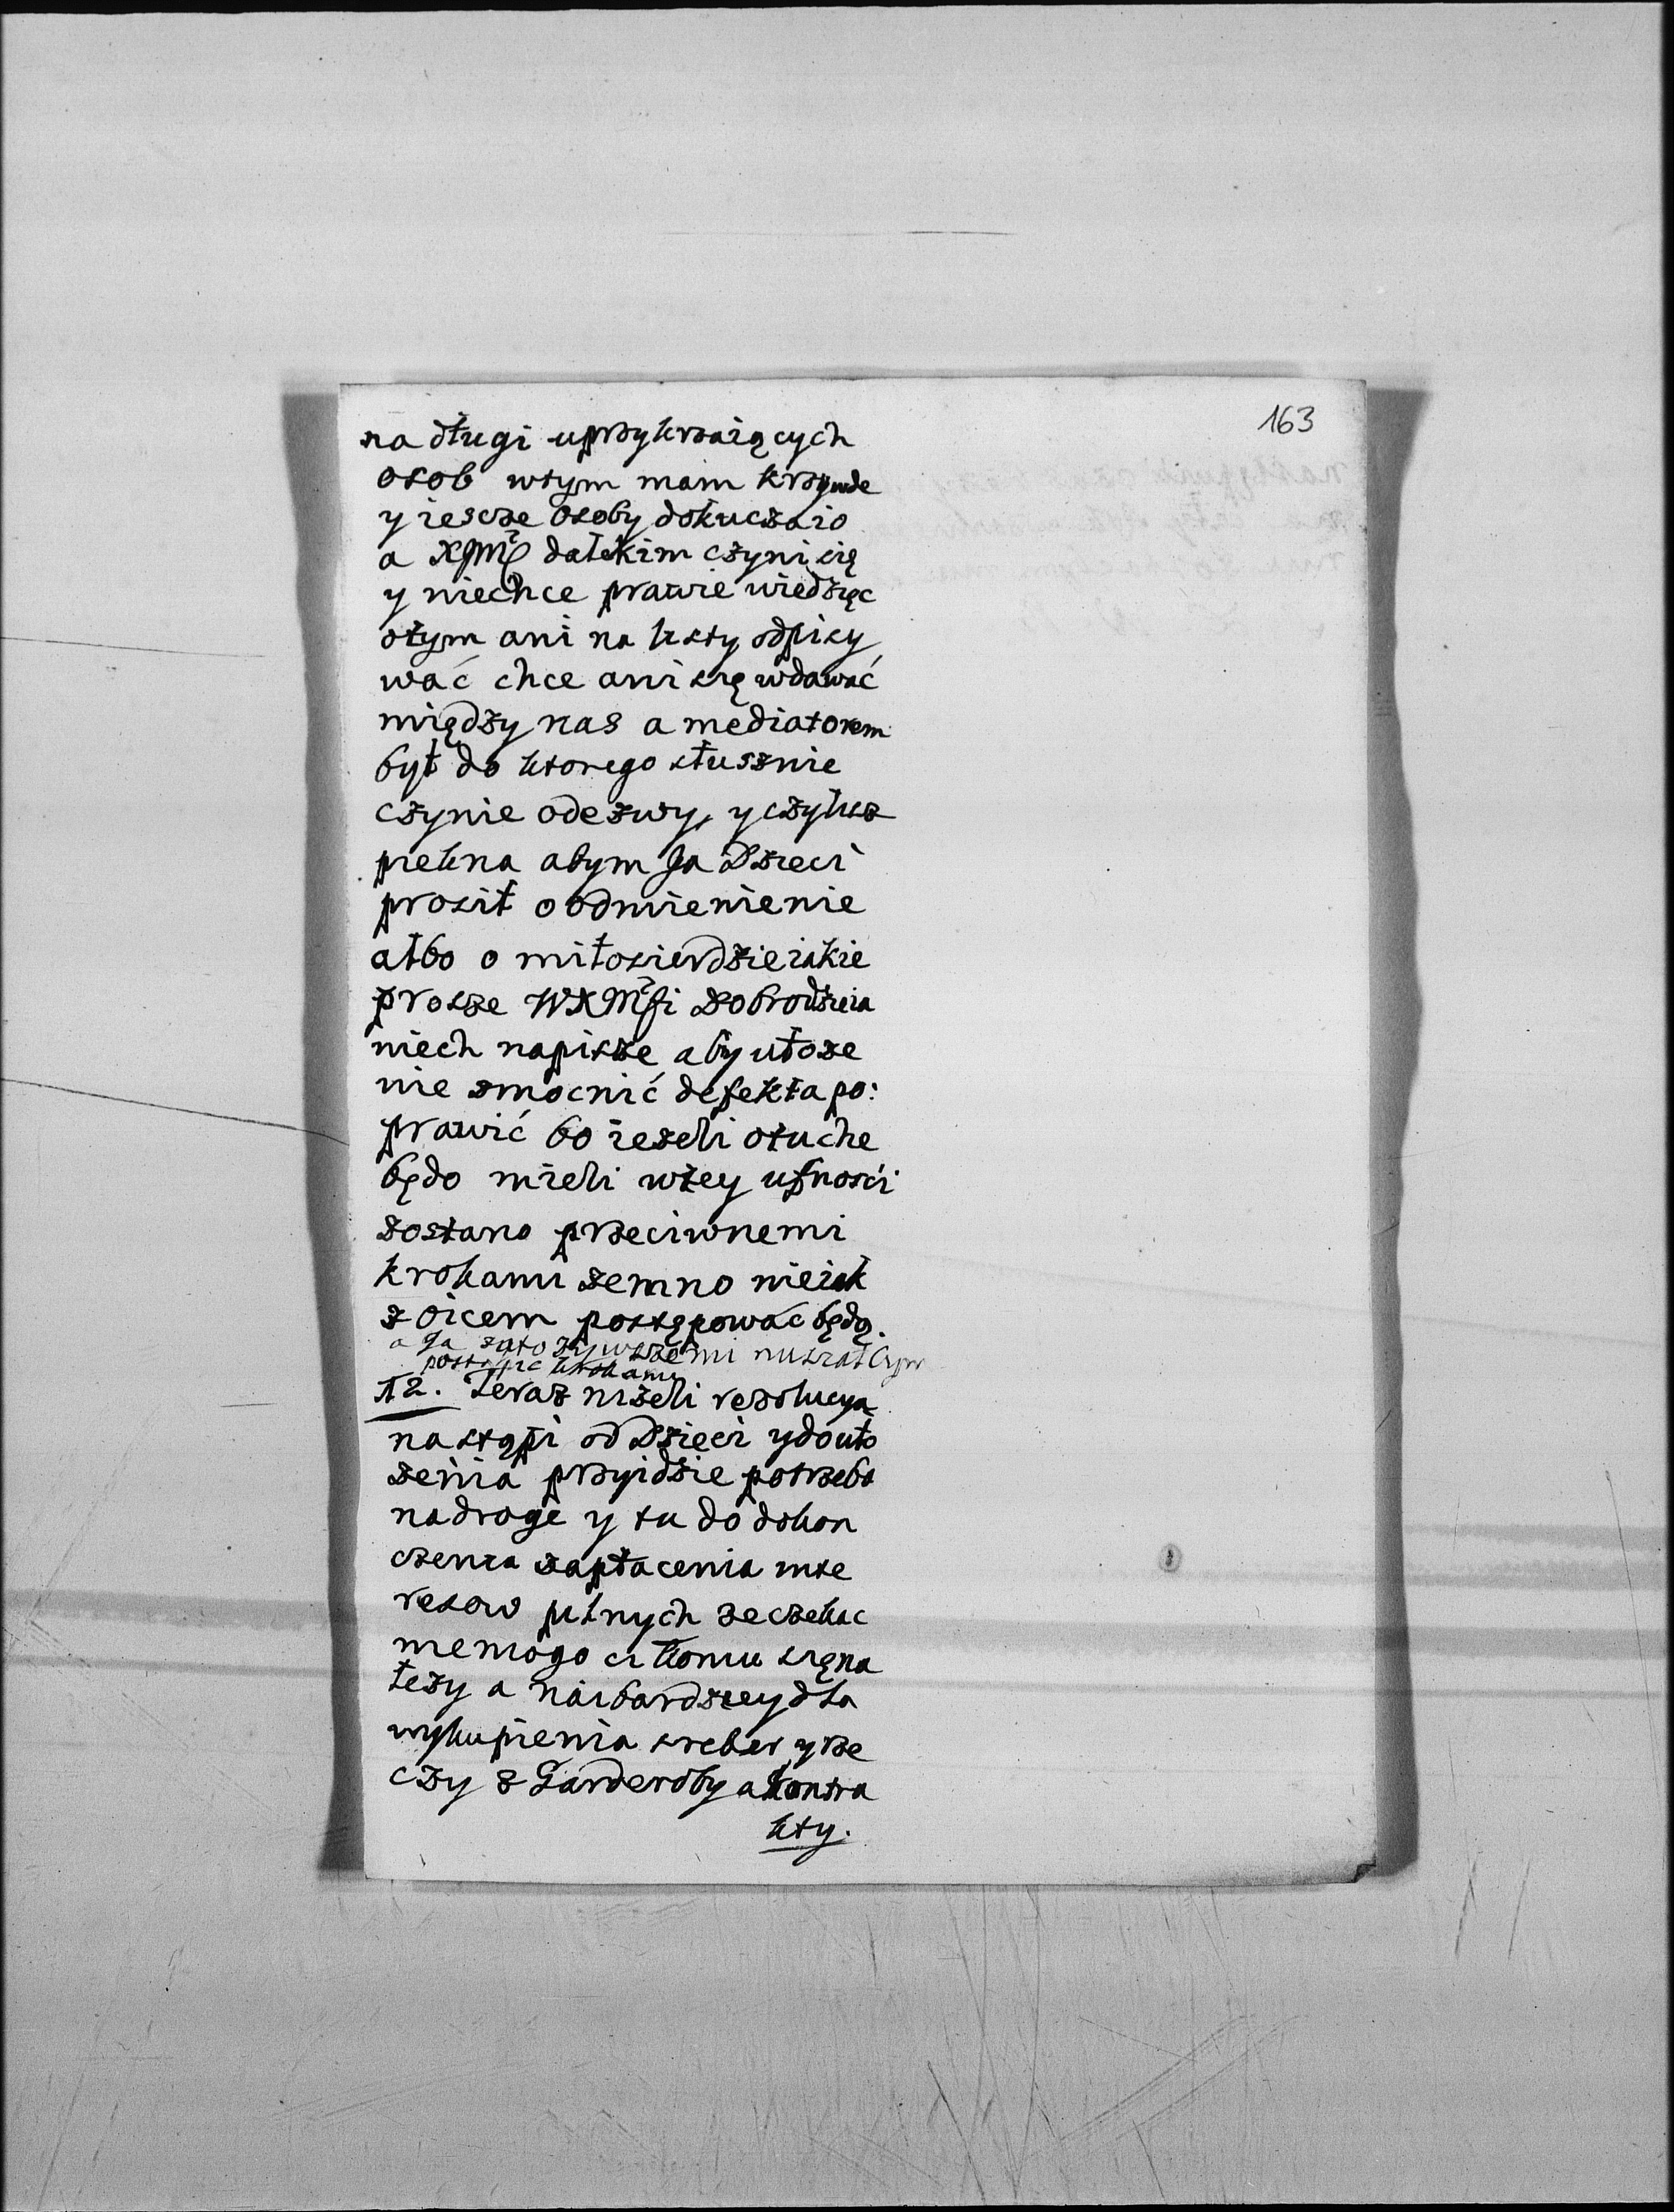 163
na długi uprzykrzaiących
osob wtym mam krzywde
y iescze osoby dokuczaio
a XJMć dalekim czyni się
y niechce prawie wiedzięc
otym ani na listy odpisy
wać chce ani się wdawać
między nas a mediatorem
był do ktorego słusznie
czynie odezwy, y czylisz
piekna abym Ja Dzieci
prosił o odmienienie
albo o miłosierdzie iakie
prosze WXMći Dobrodzieia
niech napisze aby ułoze
nie zmocnić defekta po:
prawić bo iezeli otuche
będo mieli wtey ufności
zostano przeciwnemi
krokami zemno nieiak
z oicem postępować będą.
a Ja zato zywszemi muszał bym
postąpic krokamy
12. Teraz nizeli rezolucya
nastąpi od Dzieci y do uło
zenia przyidzie potrzeba
na droge y tu do dokon
czenia zapłacenia inte
resow pilnych ze czekac
niemogo ci komu się na
lezy a naibardziey dla
wykupienia sreber y rze
czy z Garderoby a kontra
kty.